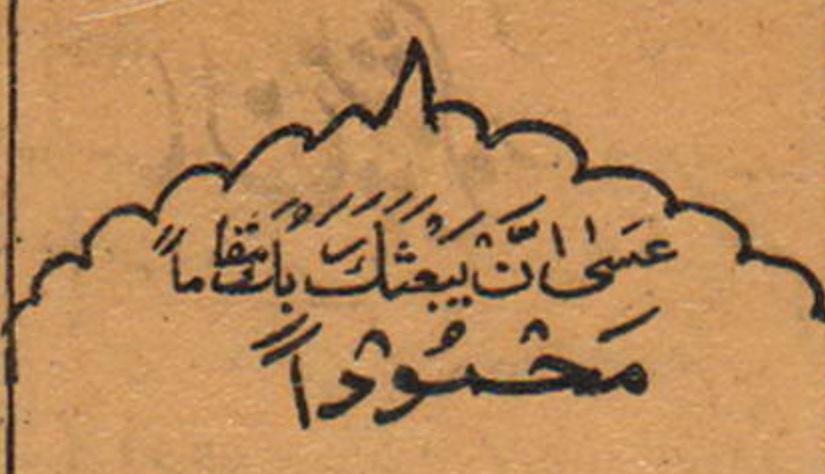 عَسٰى اَنْ يَبْعَثَكَ رَبُّكَ مَقَامًا
مَحْمُوْدًا